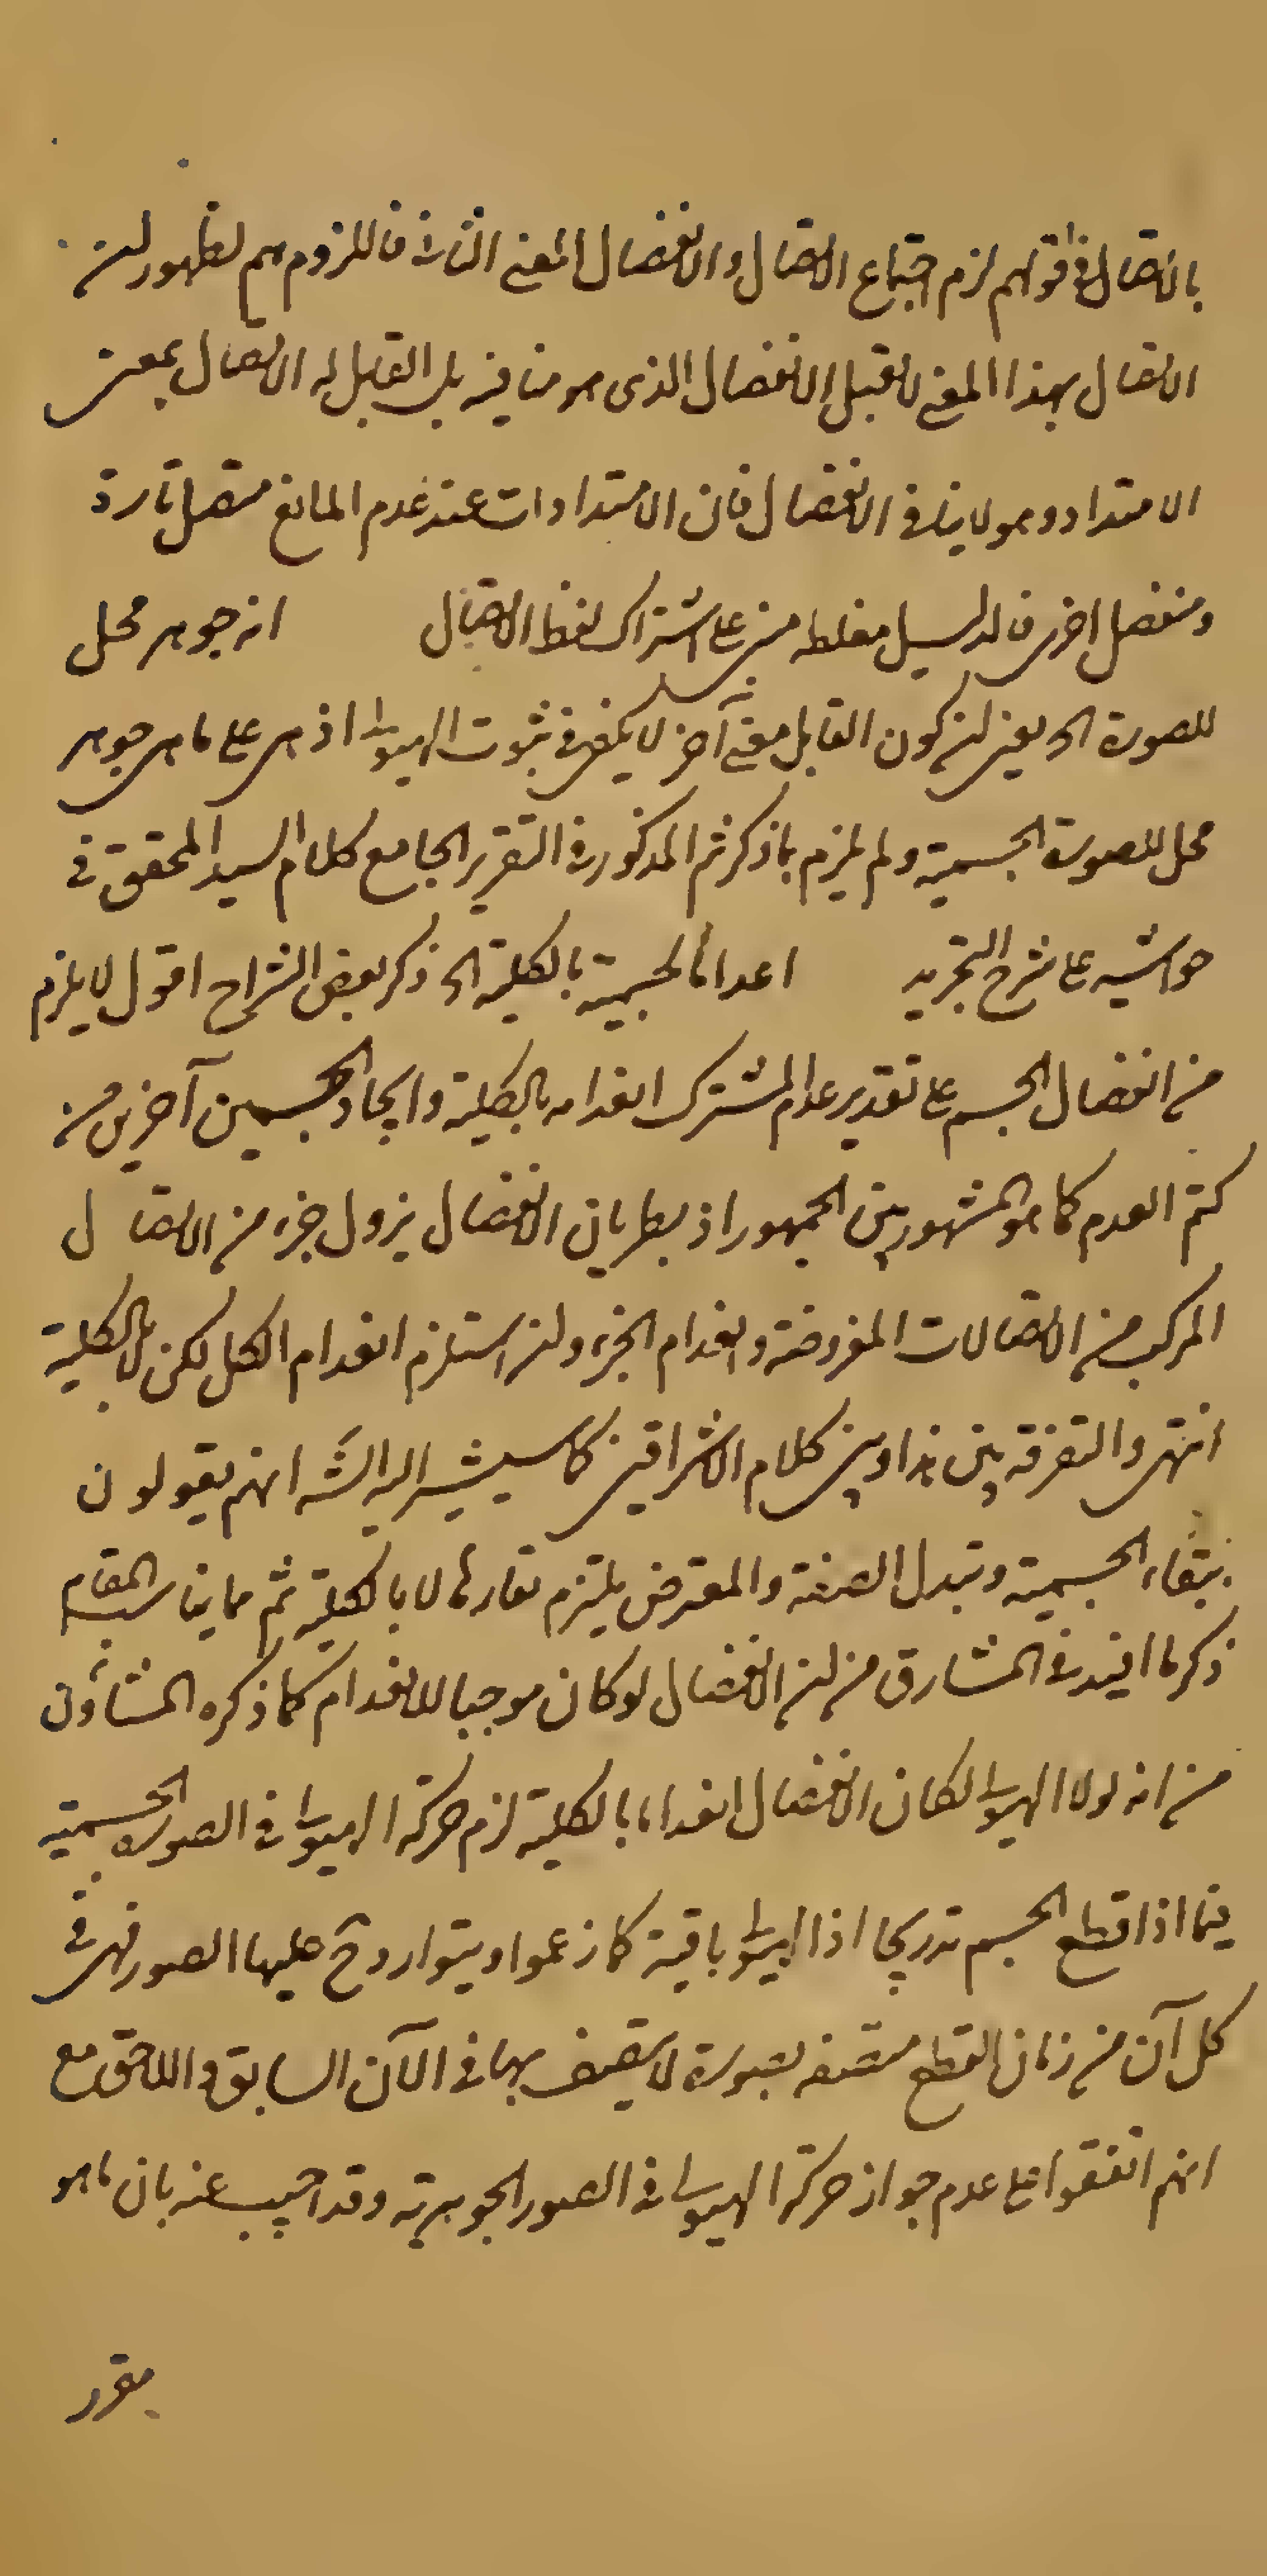 بالاتصال في قولهم لزم اجتماع الاتصال والانفصال المعنى الثاني فاللزوم مم لظهور ان
الاتصال بهذا المعنى لا يقبل الانفصال الذي هو منافيه بل القابل له الاتصال بمعنى
الامتداد وهو لا ينافي الانفصال فان الامتدادات عند عدم المانع متصل تارة
ومنفصل اخرى فالدليل مغلطه مبنى على اشتراك لفظ الاتصال انه جوهر محل
للصورة الخ يعني ان كون القابل معنى آخر لا يكفي في ثبوت الهيولى اذ هي على ما هي جوهر
محل للصورة الجسمية ولم يلزم بما ذكر ثم المذكور في التقرير الجامع كلام السيد المحقق في
حواشيه على شرح التجريد اعداما لجسمية بالكلية الخ ذكر بعض الشراح اقول لا يلزم
من انفصال الجسم على تقدير عدم المشترك انعدامه بالكلية وايجاد جسمين آخرين من
كتم العدم كما هو المشهور بين الجمهور اذ بطريان الانفصال يزول جزء من الاتصال
المركب من الاتصالات المفروضة وانعدام الجزء وان استلزم انعدام الكل لكن لا بالكلية
انتهى والتفرقه بين هذا وبين كلام الاشراقين كما سيشير اليه الش انهم يقولون
ببقاء الجسمية وتبدل الصفة والمعترض يلتزم نفادها لا بالكلية ثم مما يناسب المقام
ذكر ما افيد في المشارق من ان الانفصال لو كان موجبا للانعدام كما ذكره المشاؤن
من انه لولا الهيولى لكان الانفصال انعداما بالكلية لزم حركة الهيولى في الصورة الجسمية
فيما اذا قطع الجسم تدريجا اذ الهيولى باقية كما زعموا ويتوارد ح عليها الصور فهي في
كل آن من زمان القطع متصفه بصورة لا يتصف بها في الآن السابق واللاحق مع
انهم اتفقوا على عدم جواز حركة الهيولى في الصور الجوهرية وقد اجيب عنه بان ما هو
مقرر